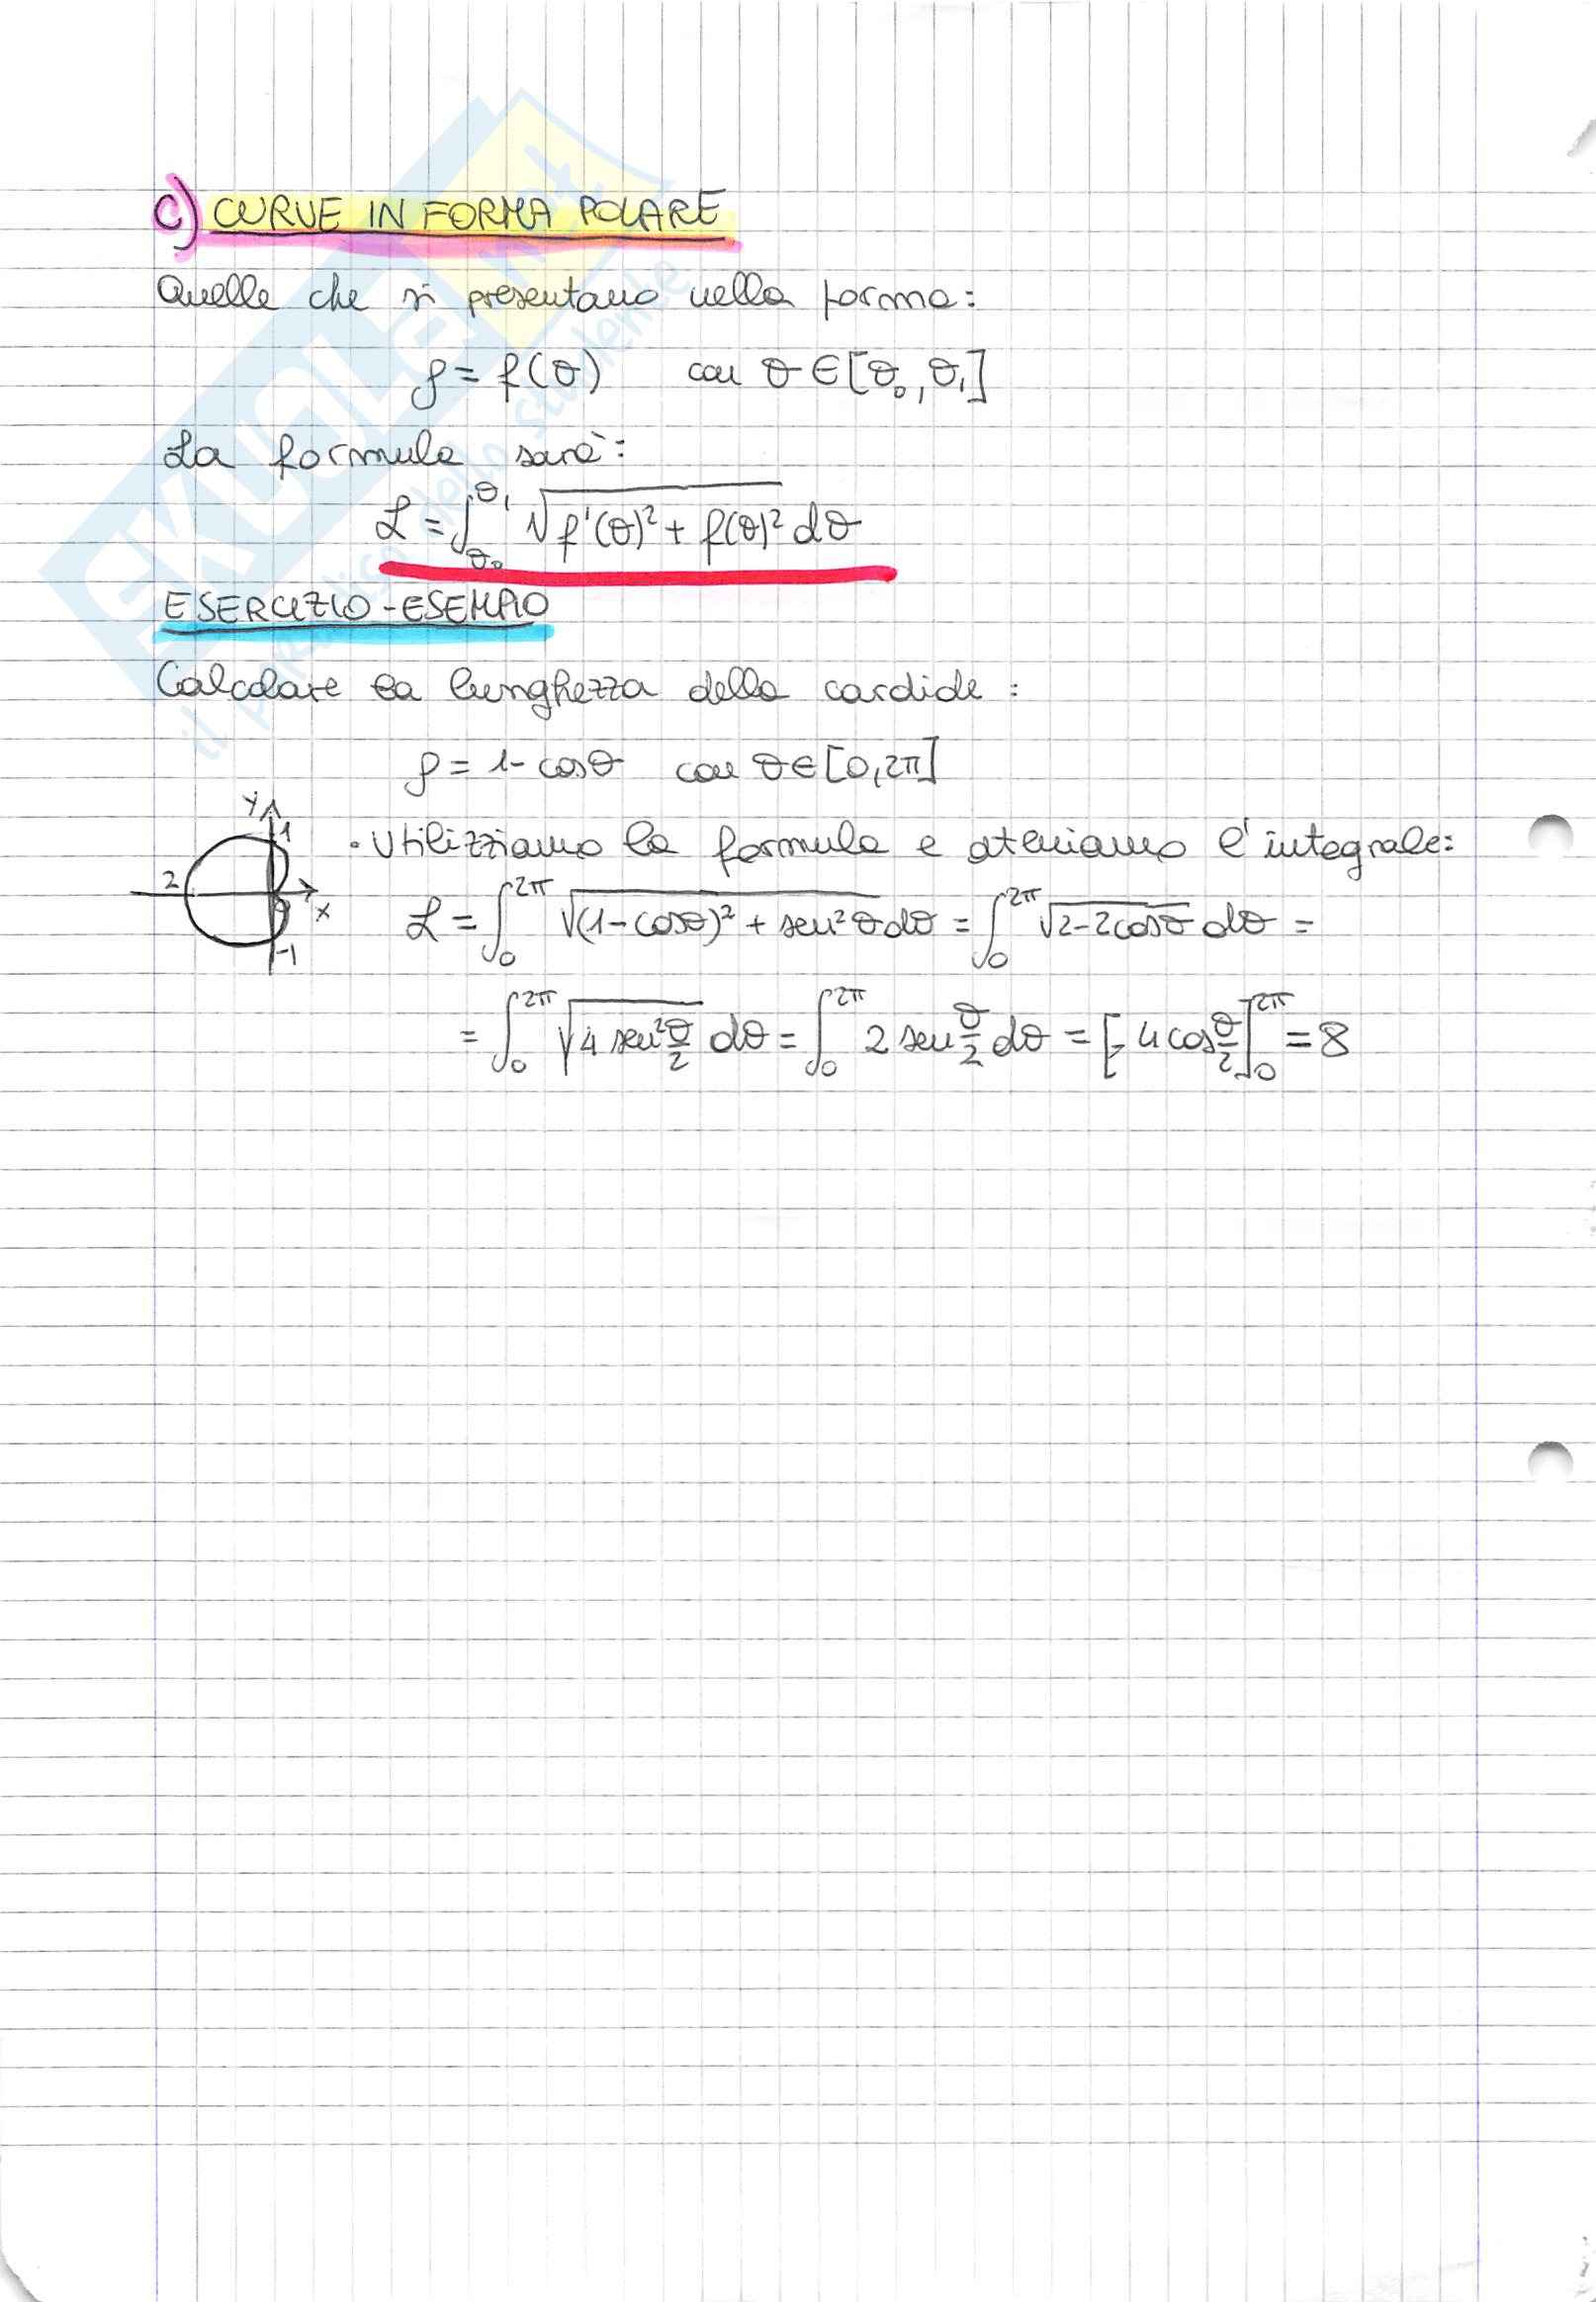 C) CURVE IN FORMA POLARE
Quelle che si presentano nella forma:
ρ = f(θ) con θ ∈ [θ₀, θ₁]
La formula sarà:
L = ∫_θ₀^θ₁ √(f'(θ)² + f(θ)²) dθ
ESERCIZIO - ESEMPIO
Calcolare la lunghezza della cardide :
ρ = 1 - cosθ con θ ∈ [0, 2π]
y 1 2 x -1
· Utilizziamo la formula e otteniamo l'integrale:
L = ∫_0^2π √((1-cosθ)² + sen²θ) dθ = ∫_0^2π √(2-2cosθ) dθ =
= ∫_0^2π √(4 sen² θ/2) dθ = ∫_0^2π 2 sen θ/2 dθ = [-4 cos θ/2]_0^2π = 8
SKUOLA.net
il paradiso dello studente